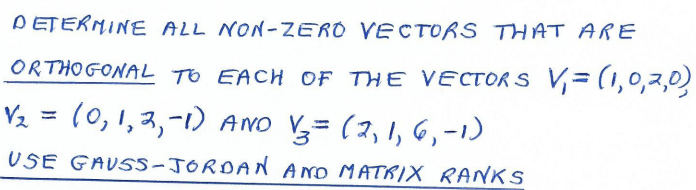 DETERMINE ALL NON-ZERO VECTORS THAT ARE
ORTHOGONAL TO EACH OF THE VECTORS V₁ = (1,0,2,0),
V₂ = (0,1,2,-1) AND V₃ = (2,1,6,-1)
USE GAUSS-JORDAN AND MATRIX RANKS